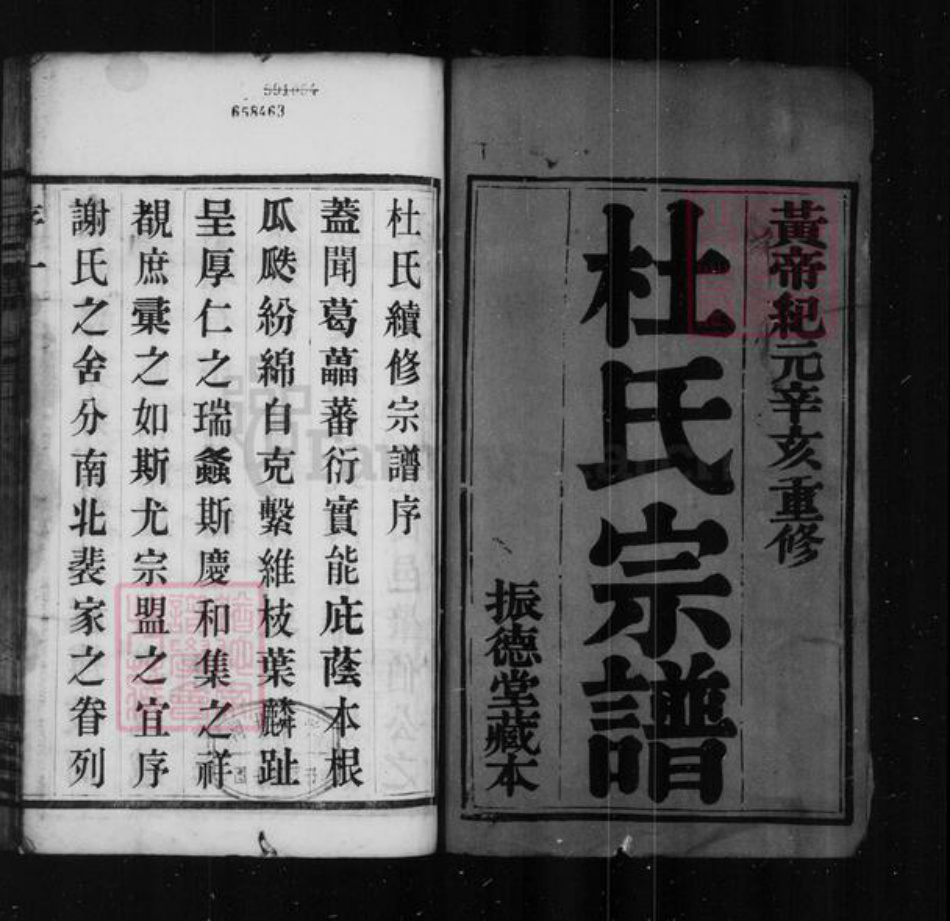 黃帝紀元辛亥重修
杜氏宗譜
振德堂藏本
591064
658463
杜氏續修宗譜序
蓋聞葛藟蕃衍實能庇蔭本根
瓜瓞紛綿自克繫維枝葉麟趾
呈厚仁之瑞螽斯慶和集之祥
覩庶彙之如斯尤宗盟之宜序
謝氏之舍分南北裴家之眷列
序一